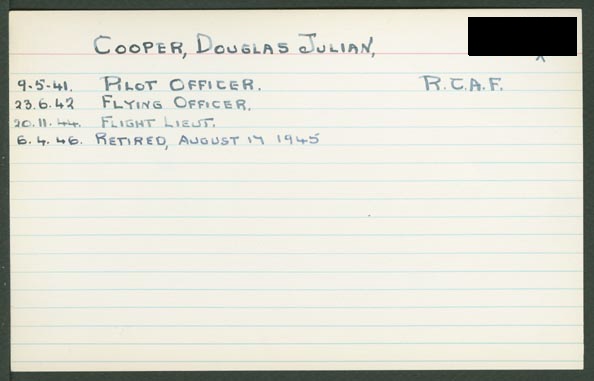 COOPER, DOUGLAS JULIAN,
9-5-41. PILOT OFFICER. R.C.A.F.
23.6.42 FLYING OFFICER.
20.11.44. FLIGHT LIEUT.
6.4.46. RETIRED, AUGUST 17 1945